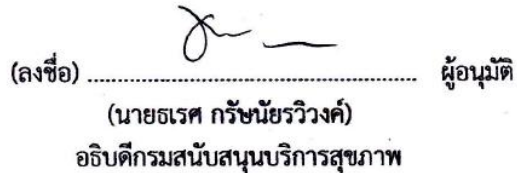 (ลงชื่อ) ........................................................ ผู้อนุมัติ
(นายธเรศ กรัษนัยรวิวงค์)
อธิบดีกรมสนับสนุนบริการสุขภาพ